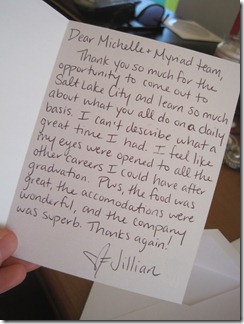 Dear Michelle + Mynad team,
Thank you so much for the
opportunity to come out to
Salt Lake City and learn so much
about what you all do on a daily
basis. I can't describe what a
great time I had. I feel like
my eyes were opened to all the
other careers I could have after
graduation. Plus, the food was
great, the accomodations were
wonderful, and the company
was superb. Thanks again!
Jillian